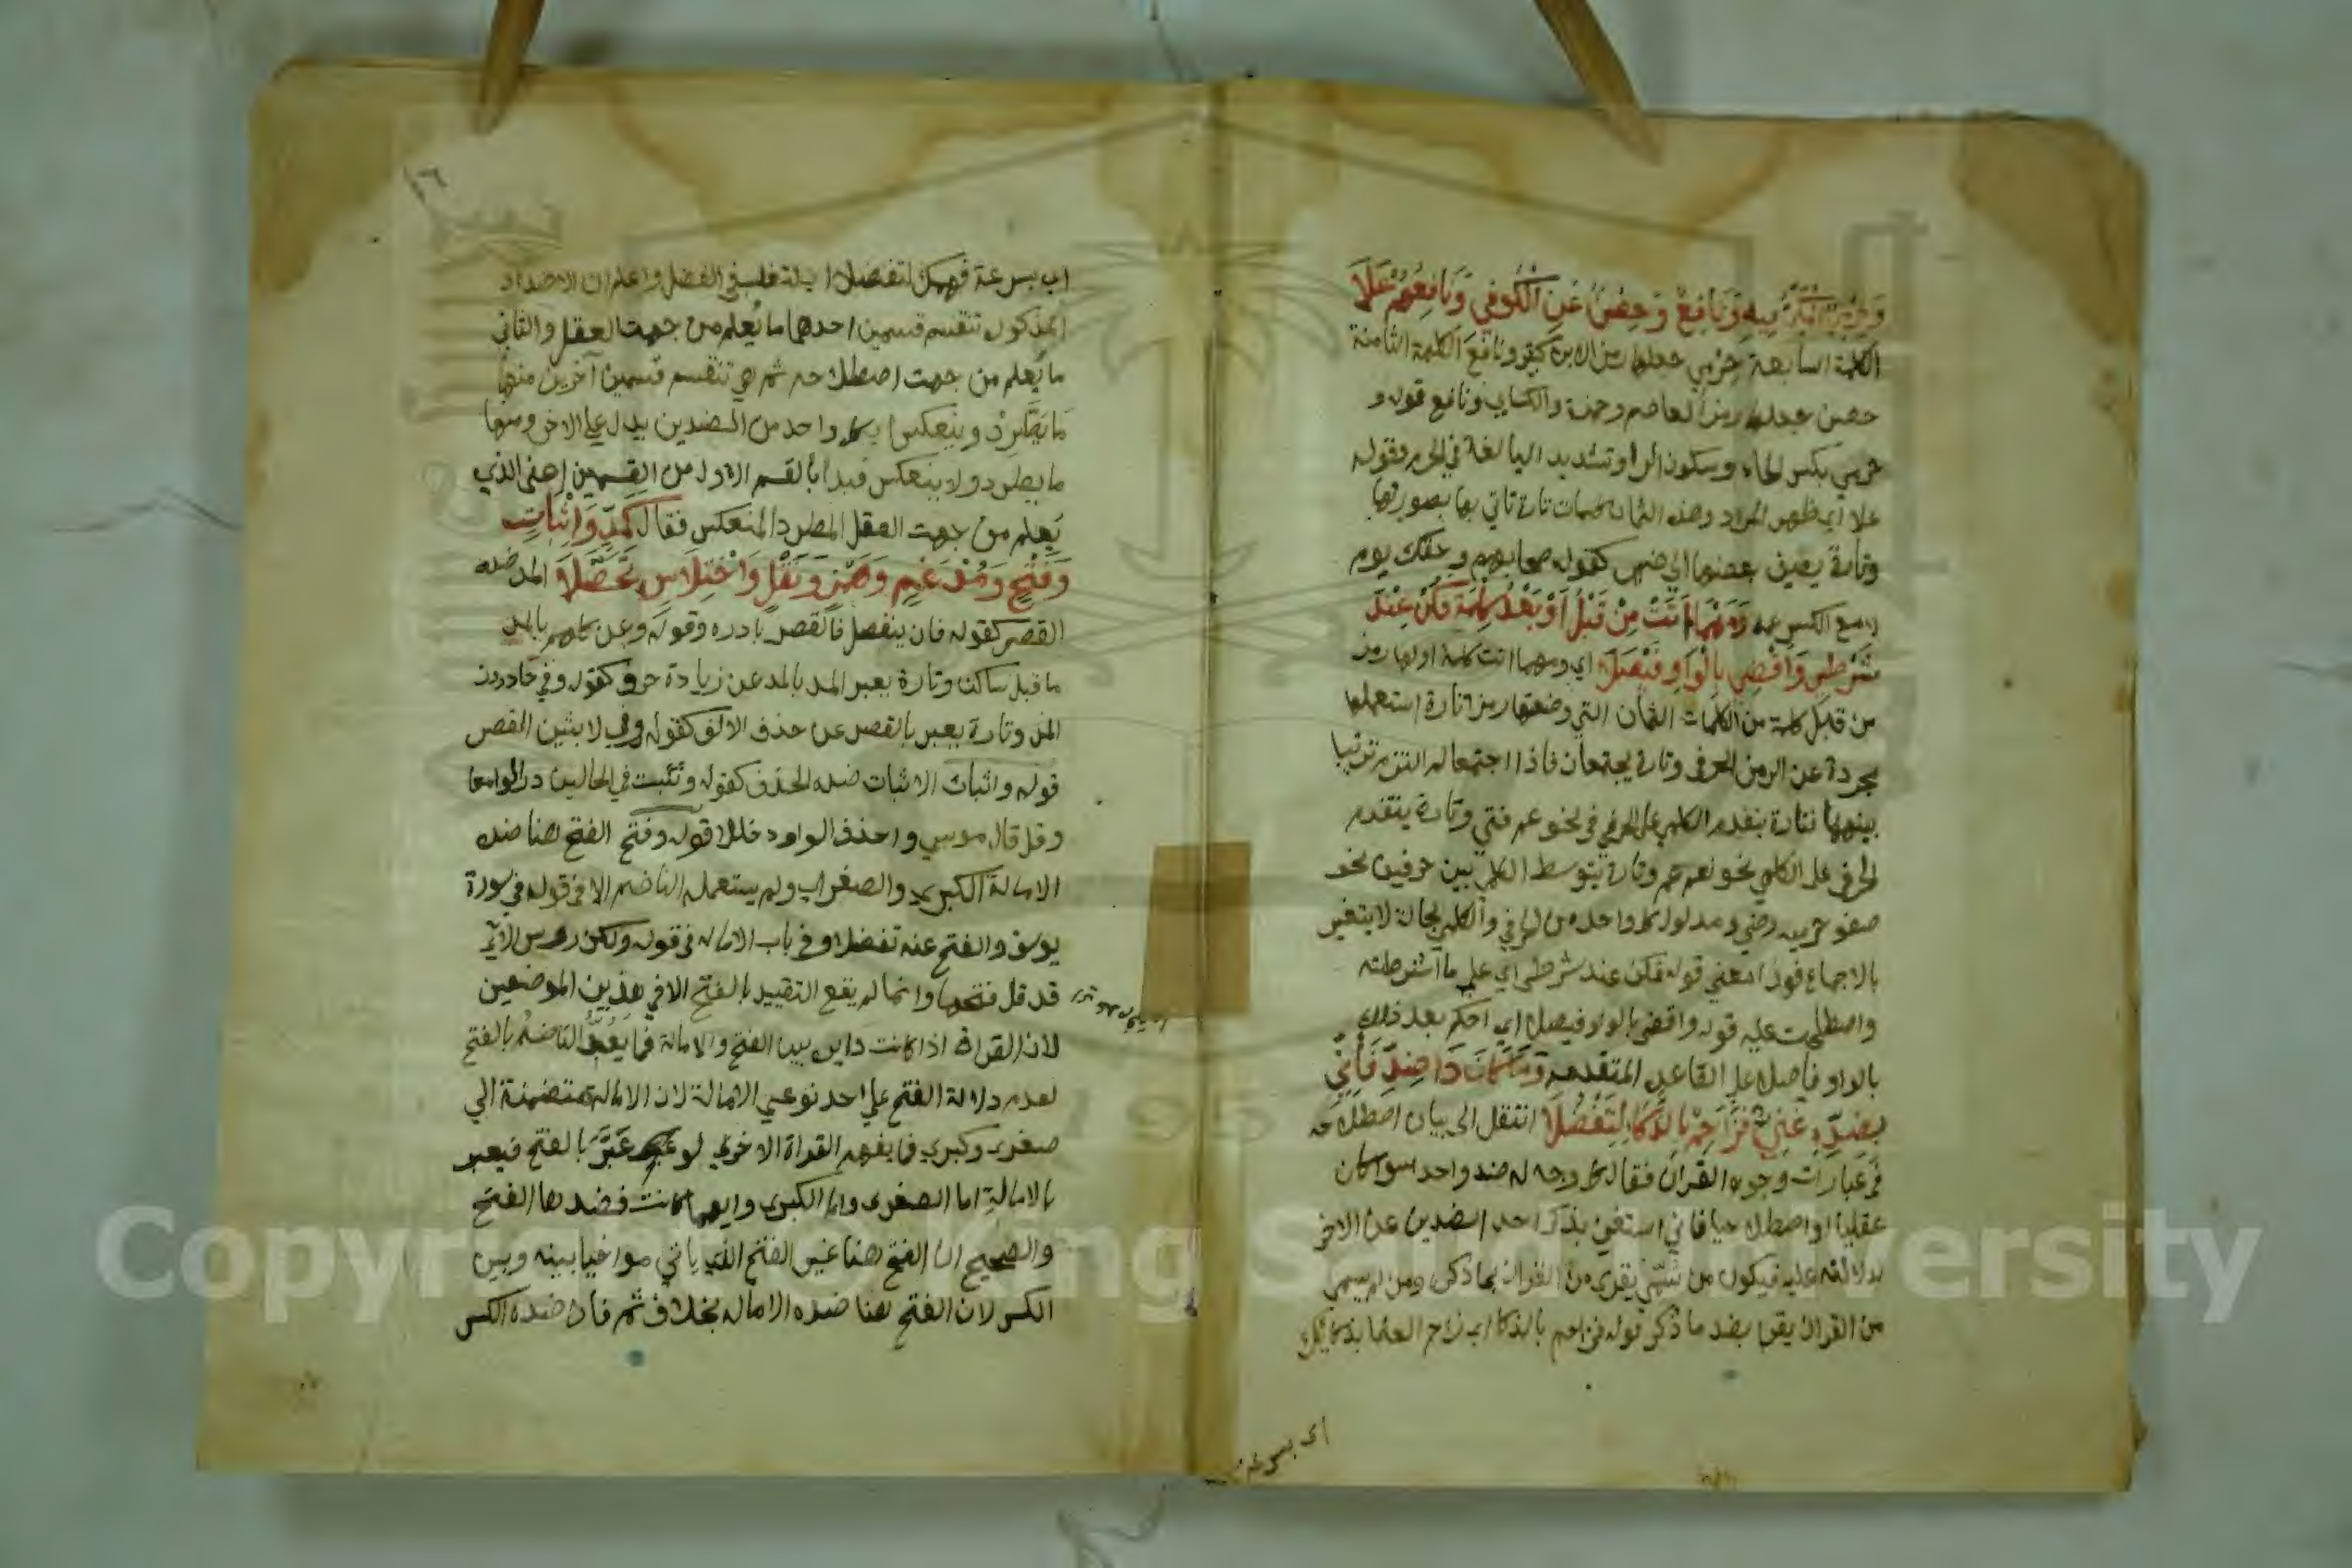 وحرمي المكي فيه ونافع وحصن عن الكوفي ونافعهم علا
الكلمة السابعة حرمي جعلها رمزا لابن كثير ونافع الكلمة الثامنة
حصن جعلها رمزا لعاصم وحمزة والكساي ونافع قوله و
حرمي بكسر الحاء وسكون الرا وتشديد اليا لغة في الحرم وقوله
علا اي ظهر المراد وهذه الثمان كلمات تارة تاتي بها بصورتها
وتارة يضيف بعضها الي ضمير كقوله صحابهم وحقك يوم
لا مع الكسر عمه ومهما اتت من قبل او بعد كلمة فكن عند
شرطي واقض بالواو فيصلا اي ومهما اتت كلمة اولها رمز
من قبل كلمة من الكلمات الثمان التي وضعتها رمزا تارة استعملها
مجردة عن الرمز الحرفي وتارة يجتمعان فاذا اجتمعا لم التزم ترتيبا
بينهما فتارة يتقدم الكلمي على الحرفي نحو عم فتي وتارة يتقدم
الحرفي على الكلمي نحو نعم عم وتارة يتوسط الكلمي بين حرفين نحو
صفو حرميه رضي ومدلول كل واحد من الحرفي والكلمي بحالة لا يتغير
بالاجماع فهذا معني قوله فكن عند شرطي اي علي ما اشترطته
واصطلحت عليه قوله واقض بالواو فيصلا اي احكم بعد ذلك
بالواو فاصلا على القاعدة المتقدمة وما كان ذا ضد فاني
بضده غني فزاحم بالذكاء لتفضلا انتقل الى بيان اصطلاحه
في عبارات وجوه القران فقال كل وجه له ضد واحد سوا كان
عقليا او اصطلاحيا فاني استغني بذكر احد الضدين عن الاخر
لدلالته عليه فيكون من سمي يقرى من القران بما ذكر ومن لم يسمي
من القران يقرا بضد ما ذكر قوله فزاحم بالذكا اي زاحم العلما بذكايك
اي بسرعة
١٦
اي بسرعة فهمك لتفضلا اي لتغلب في الفضل واعلم ان الاضداد
المذكول تنقسم قسمين احدهما ما يعلم من جهت العقل والثاني
ما يعلم من جهت اصطلاحه ثم هي تنقسم قسمين آخرين منها
ما يطرد وينعكس اي كل واحد من الضدين يدل علي الاخر ومنها
ما يطرد ولا ينعكس فبدا بالقسم الاول من القسمين اعني الذي
يعلم من جهت العقل المطرد المنعكس فقال كمد واثبات
وفتح ومدغم وهمز ونقل واختلاس تحصلا المد ضده
القصر كقوله فان ينفصل فالقصر بادره وقوله وعن كلهم بالمد
ما قبل ساكن وتارة يعبر المد بالمد عن زيادة حرف كقوله وفي حاذرون
المد وتارة يعبر بالقصر عن حذف الالف كقوله وفي لابثين القصر
قوله واثبات الاثبات ضده الحذف كقوله وتثبت في الحالين درا لوامعا
وقل قال موسي واحذف الواو دخللا قوله وفتح الفتح هنا ضده
الامالة الكبرى والصغراي ولم يستعمله الناضم الا في قوله في سورة
يوسف والفتح عنه تفضلا وفي باب الامالة في قوله ولكن روس الاي
قد قل فتحها وانما لم يقع التقييد بالفتح الا في هذين الموضعين
لان القراة اذا كانت داير بين الفتح والامالة فما يعبر الناضم بالفتح
لعدم دلالة الفتح علي احد نوعي الامالة لان الامالة متضمنة الي
صغرى وكبري فما يفهم القراة الاخري لو عبر بالفتح فيعبر
بالامالة اما الصغرى واما الكبرى وايهما كانت فضدها الفتح
والصحيح ان الفتح هنا غير الفتح الذي ياتي مواخيا بينه وبين
الكسر لان الفتح هنا ضده الامالة بخلاف ثم فان ضده الكسر
Copyright © King Saud University
1957